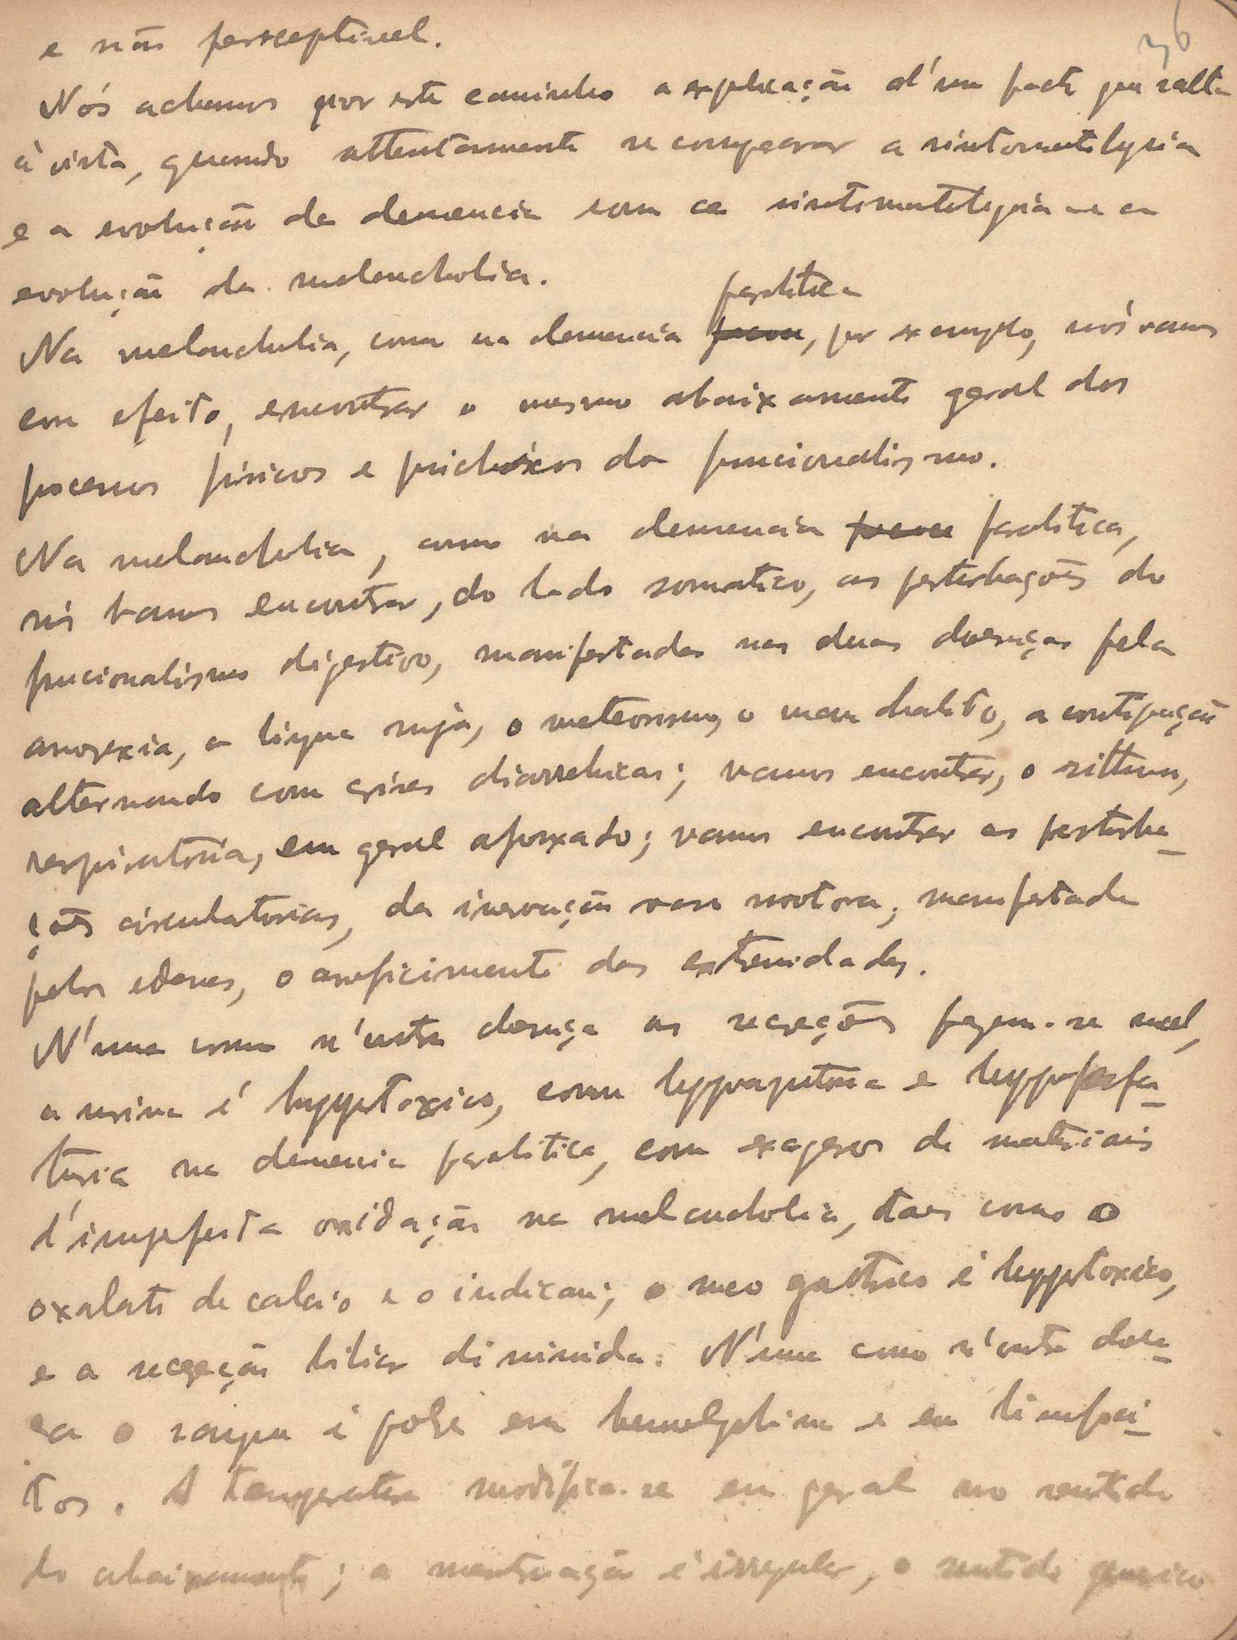 36
e não perceptivel.
Nós achamos por este caminho a explicação d'um facto que salta
à vista, quando attentamente se comparar a sintomatologia
e a evolução da demencia com a sintomatologia e a
evolução da melancholia.
paralitica
Na melancholia, como na demencia, por exemplo, nós vamos
com efeito, encontrar o mesmo abaixamento geral dos
processos fisicos e psichicos do funcionalismo.
Na melancholia, como na demencia paralitica,
nós vamos encontrar, do lado somatico, as perturbações do
funcionalismo digestivo, manifestadas nas duas doenças pela
anorexia, a lingua suja, o meteorismo, o mau halito, a constipação
alternando com crises diarrheicas; vamos encontrar, o rithmo,
respiratorio, em geral afrouxado; vamos encontrar as perturba-
ções circulatorias, da inervação vaso motora, manifestada
pelos edemas, o arrefecimento das extremidades.
N'uma como n'outra doença as secreções fazem-se mal,
a urina é hypotoxica, com hypoazoturia e hypofosfa-
turia na demencia paralitica, com exagero de materiais
d'imperfeita oxidação na melancholia, taes como o
oxalato de calcio e o indican; o suco gastrico é hypotoxico,
e a secreção biliar diminuida. N'uma como n'outra doen-
ça o sangue é pobre em hemoglobina e em
A temperatura modifica-se em geral no sentido
do abaixamento; a menstruação é irregular, o sentido genesico